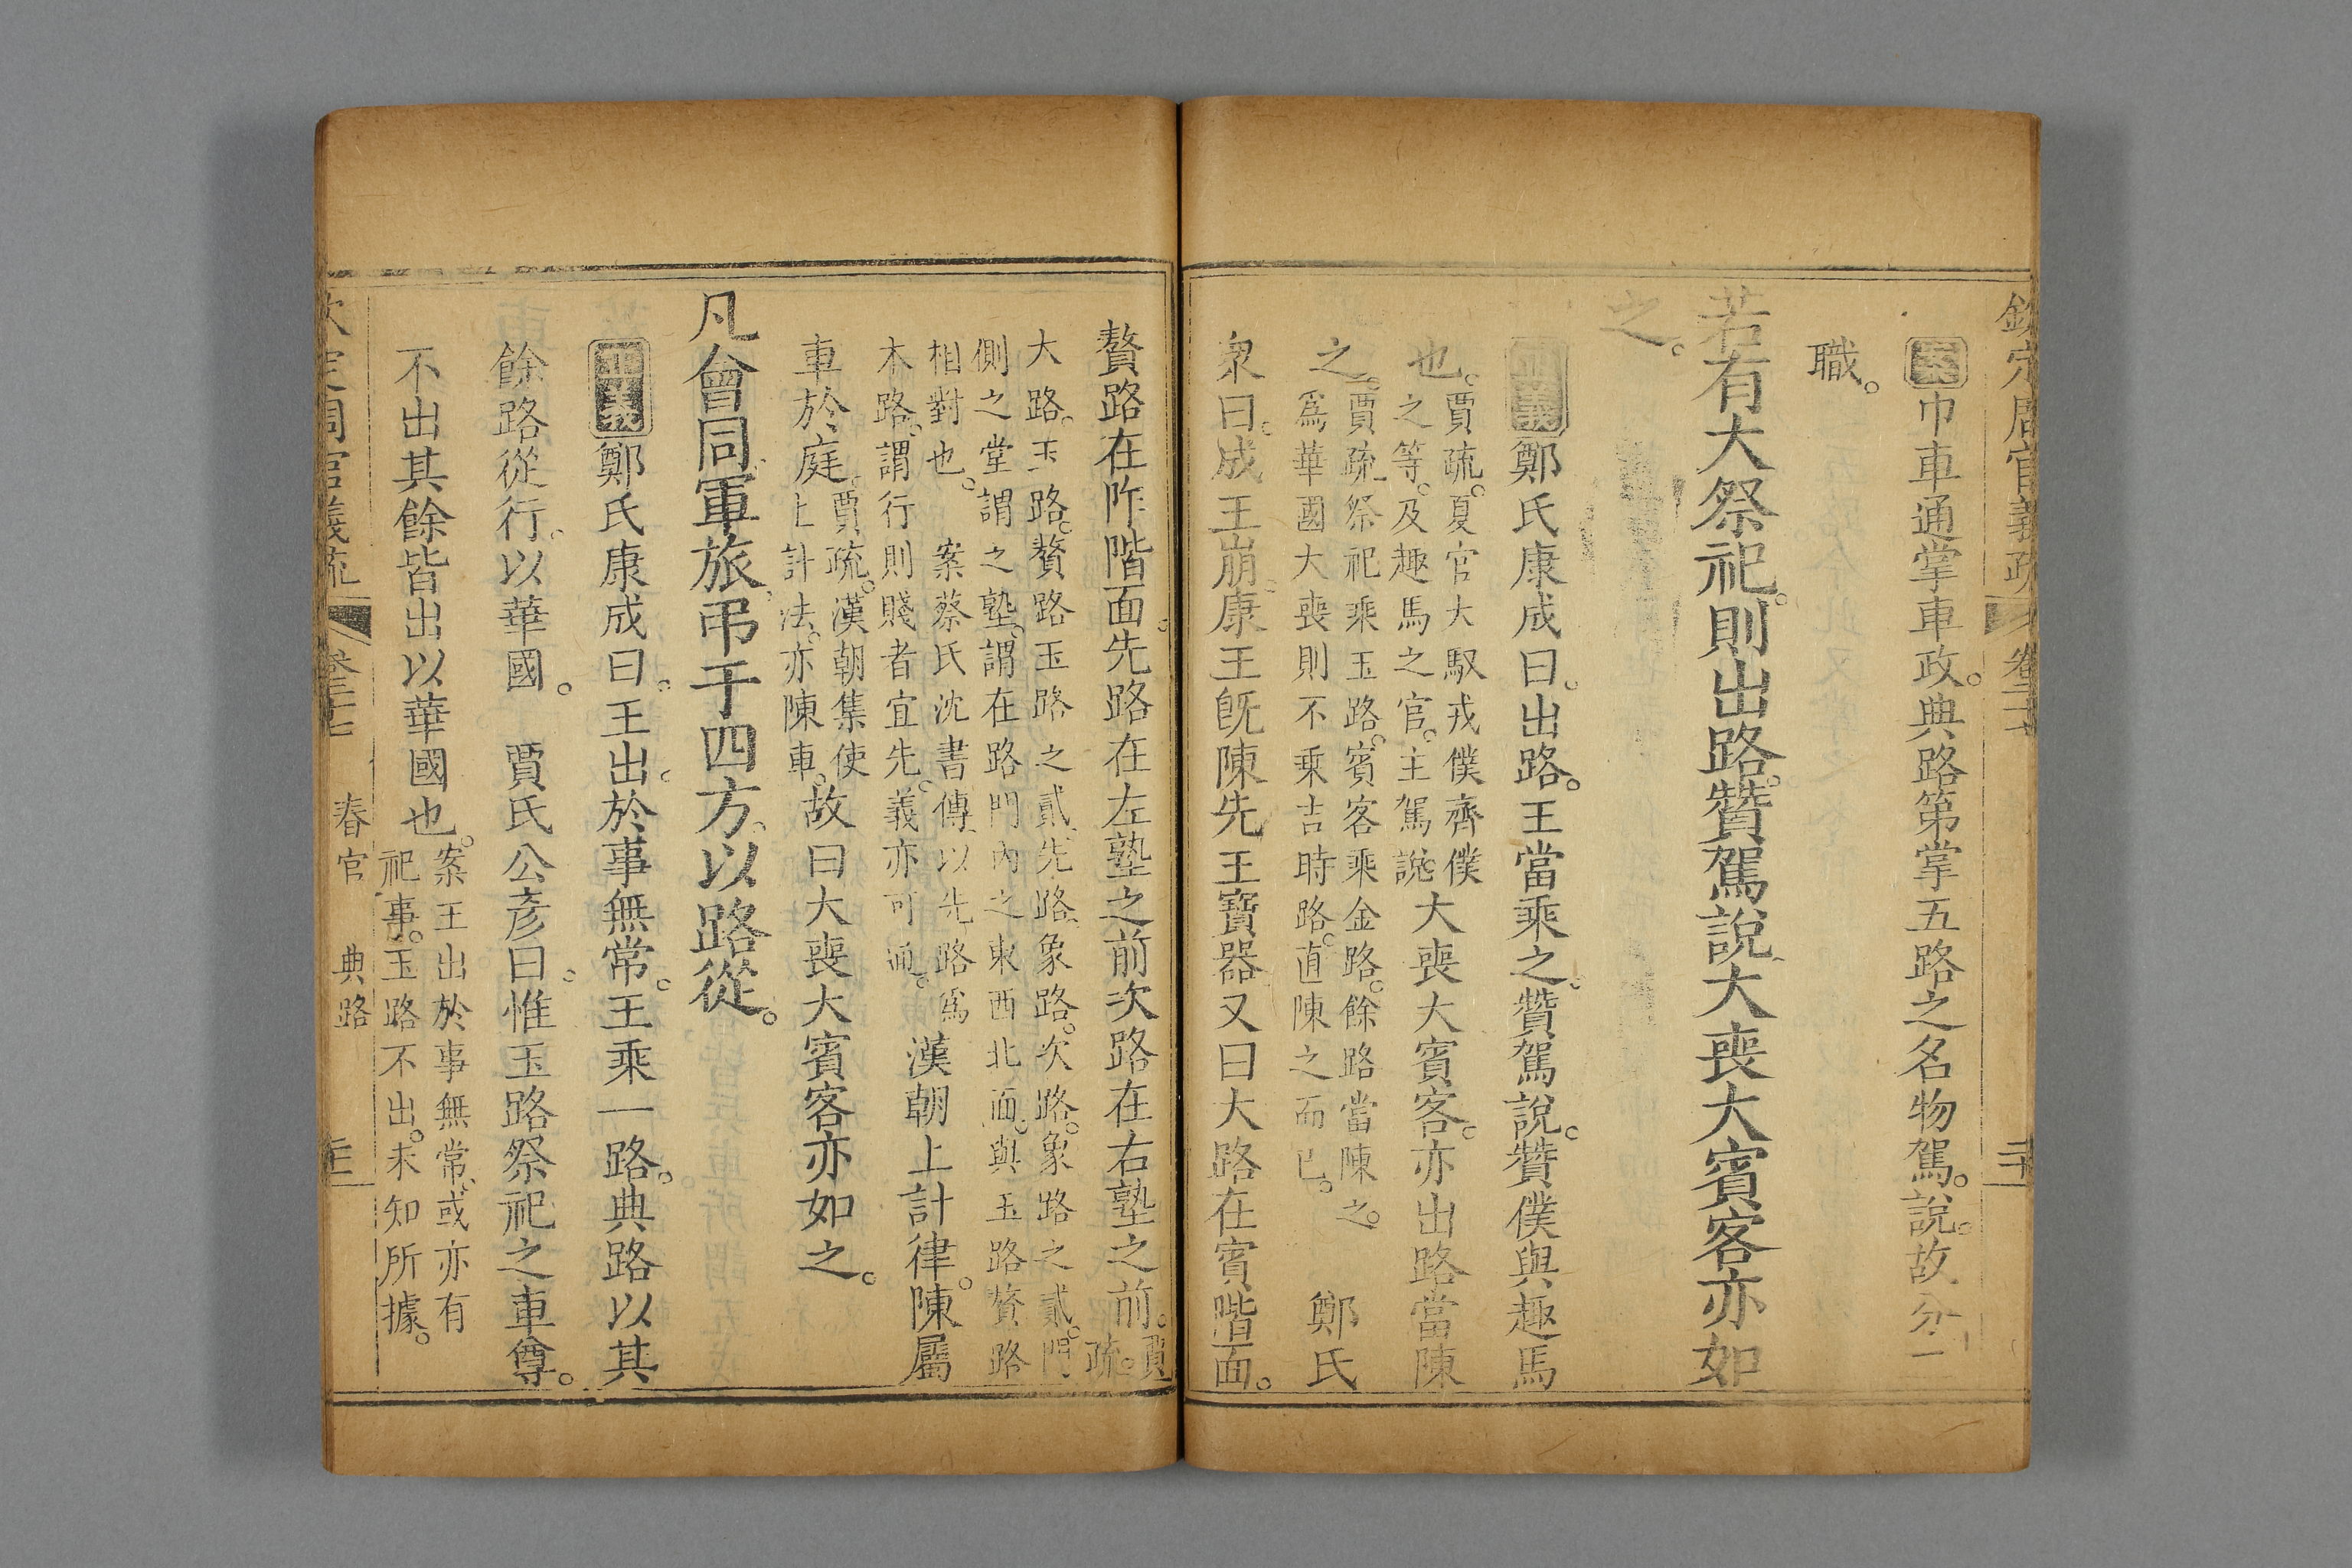 欽定周官義疏 卷二十七 三十
案巾車通掌車政。典路第掌五路之名物駕。說。故分一
職。
若有大祭祀。則出路。贊駕說。大喪大賓客亦如
之。
正義鄭氏康成曰。出路。王當乘之。贊駕說。贊僕與趣馬
也。賈疏。夏官大馭戎僕齊僕
之等。及趣馬之官。主駕說大喪大賓客。亦出路當陳
之。賈疏。祭祀乘玉路。賓客乘金路。餘路當陳之。
爲華國大喪則不乘吉時路。直陳之而已。 鄭氏
衆曰。成王崩。康王旣陳先王寶器又曰大路在賓階面。
贅路在阼階面。先路在左塾之前次路在右塾之前。賈疏。
大路。玉路。贅路玉路之貳。先路。象路。次路。象路之貳。門
側之堂謂之塾。謂在路門內之東西北面。與玉路贅路
相對也。 案蔡氏沈書傳。以先路爲
木路。謂行則賤者宜先。義亦可通。漢朝上計律。陳屬
車於庭。賈疏。漢朝集使
上計法。亦陳車。故曰大喪大賓客亦如之。
凡會同軍旅。弔于四方。以路從。
正義鄭氏康成曰。王出。於事無常。王乘一路。典路以其
餘路從行。以華國。 賈氏公彥曰。惟玉路祭祀之車尊。
不出其餘皆出以華國也。案王出於事無常。或亦有
祀事。玉路不出。未知所據。
欽定周官義疏 卷二十七 春官 典路 三十